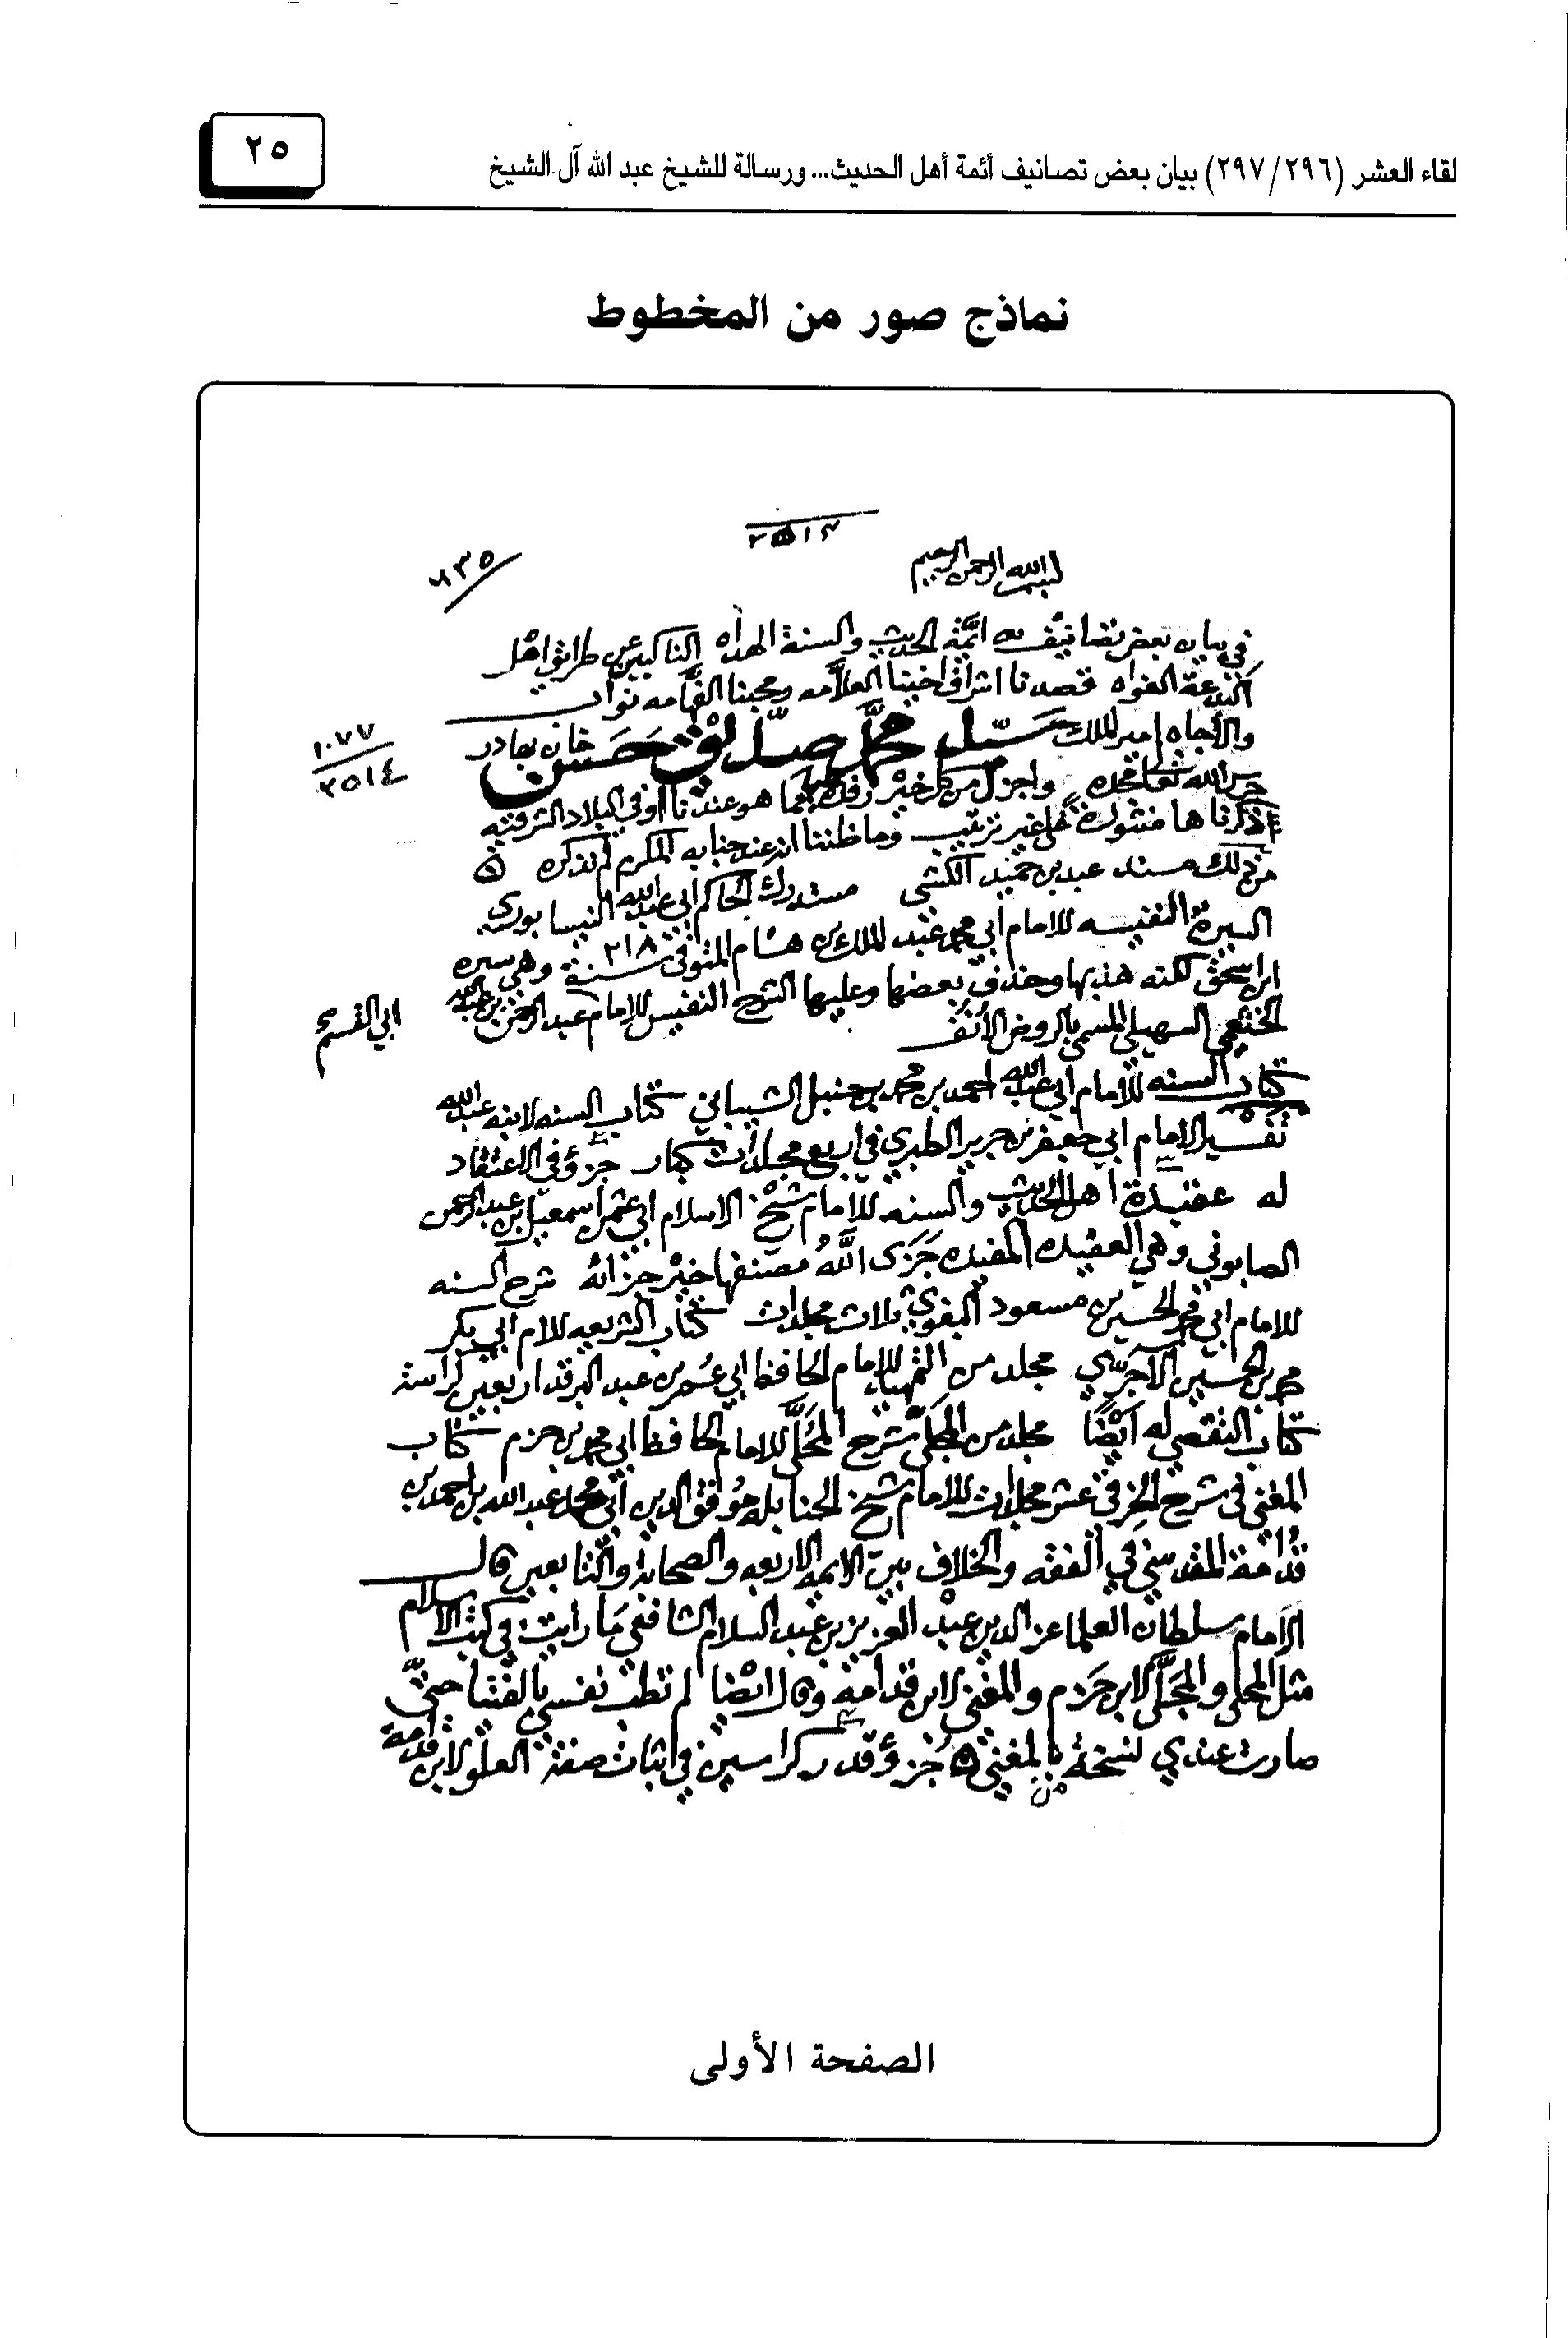 ٢٥
لقاء العشر (٢٩٦/٢٩٧) بيان بعض تصانيف أئمة أهل الحديث... ورسالة للشيخ عبد الله آل الشيخ
نماذج صور من المخطوط
٣٥١٤
٨٣٥
بسم الله الرحمن الرحيم
في بيان بعض تصانيف ائمة الحديث والسنة الهداه الناكبين عن طرائق اهل
البدعة الغواه قصدنا اشراف اخينا العلامه ومحبنا الفهامه نواب
والاجاه امير الملك سيد محمد صديق حسن خان بهادر
١٠٧٧
٣٥١٤
حرس الله تعالى مجده واجزل من كل خير رفده مما هو عندنا او في البلاد الشرقيه
ذكرناها منثورة على غير ترتيب وما ظننا انه عند جنابه المكرم لم نذكره ه
من ذلك مسند عبد بن حميد الكشي مستدرك الحاكم ابي عبد الله النيسابوري
السيرة النفيسه للامام ابي محمد عبد الملك بن هشام المتوفى سنة ٢١٨ وهي سيره
ابن اسحق لكنه هذبها وحذف بعضها وعليها الشرح النفيس للامام عبد الرحمن بن عبد الله
ابي القسم
الخثعمي السهيلي المسمى بالروض الأنف
كتاب السنه للامام ابي عبد الله احمد بن محمد بن حنبل الشيباني كتاب السنه لابنه عبد الله
تفسير الامام ابي جعفر بن جرير الطبري في اربع مجلدات كبار جزؤ في الاعتقاد
له عقيدة اهل الحديث والسنه للامام شيخ الاسلام ابي عثمن اسمعيل بن عبد الرحمن
الصابوني وهي العقيده المفيده جزى الله مصنفها خير جزائه شرح السنه
للامام ابي محمد الحسين بن مسعود البغوي ثلاث مجلدات كتاب الشريعه للامام ابي بكر
محمد بن الحسين الآجري مجلد من التمهيد للامام الحافظ ابي عمر بن عبد البر قدار بعين كراسة
كتاب التقصي له ايضا مجلد من المجلى شرح المحلى للامام الحافظ ابي محمد بن حزم كتاب
المغني في شرح الخرقي عشر مجلدات للامام شيخ الحنابله موفق الدين ابي محمد عبد الله بن احمد بن
قدامة المقدسي في الفقه والخلاف بين الايمه الاربعه والصحابة والتابعين قال
الامام سلطان العلما عز الدين عبد العزيز بن عبد السلام الشافعي ما رايت في كتب الاسلام
مثل المحلى والمجلى لابن حزم والمغني لابن قدامة وقال ايضا لم تطب نفسي بالفتيا حتى
صارت عندي نسخة بالمغني ه جزؤ قدر كراسين في اثبات صفة العلو لابن قدامة
من
الصفحة الأولى